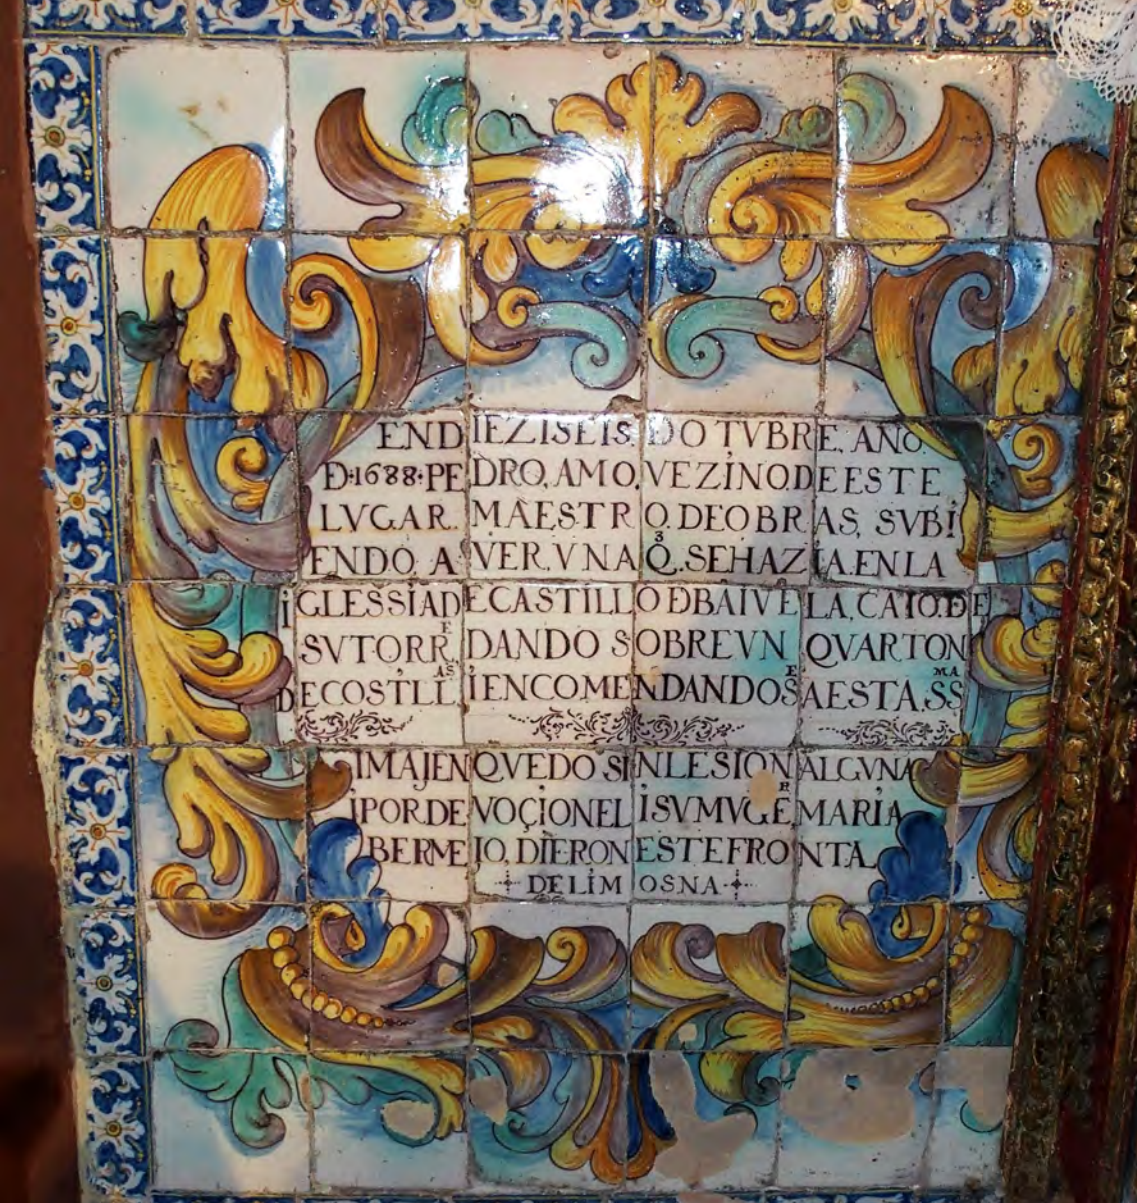 EN DIEZ I SEIS, DO TVBRE, AÑO,
D·1688·PEDRO, AMO, VEZINO, DE ESTE
LVGAR. MAESTRO. DE OBRAS, SVBI
ENDO, A VER, VNA Q. SE HAZIA, EN LA
IGLESSIA DE CASTILLO D BAIVELA, CAIO. DE
SV TORRE DANDO SOBRE VN QVARTON
DE COSTILLAS I ENCOMENDANDOSE A ESTA. SSMA
IMAJEN QVEDO SIN LESION ALGVNA
I POR DEVOÇION EL I SV MVGER MARIA
BERMEJO, DIERON ESTE FRONTA
DE LIMOSNA